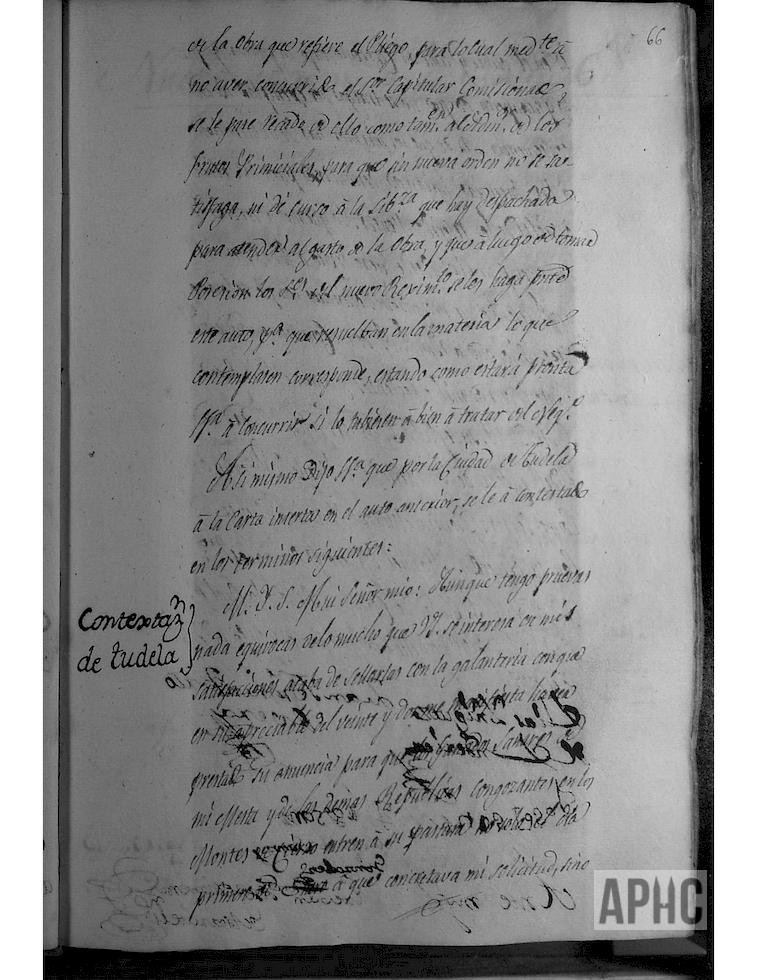 66
de la obra que refiere el Pliego, para lo cual med.te à
no aver concurrido el S.or Capitular Comisionado
se le pase recado de ello como tam.n al Adm.r de los
frutos Primiciales, para que sin nueva orden no se sa
tisfaga, ni dé curso à la lib.za que hay despachada
para atender al gasto de la obra, y que à luego de tomar
Posesion los S.es del nuevo Reximt.o se les haga pnte
este auto, p.a que resuelban en la materia lo que
contemplaren corresponde, estando como estará pronta
à concurrir si lo tubieren à bien à tratar del Neg.o
Asi mismo Dijo que por la Ciudad de Tudela
à la Carta inserta en el auto anterior, se le à contextado
en los terminos siguientes:
Contextaz.n
de tudela
M. Y. S. Mui Señor mio: Aunque tengo pruevas
nada equivocas de lo mucho que VS. se interesa en mis
satisfaciones acaba de sellarlas con la galanteria con que
en su apreciable del veinte y dos
prestado su anuencia para que los Ganados lanares de
mi Mesta y de las demas Republicas congozantes en los
Montes entren à su pastura
primero à que concretava mi solicitud, sino
APHC